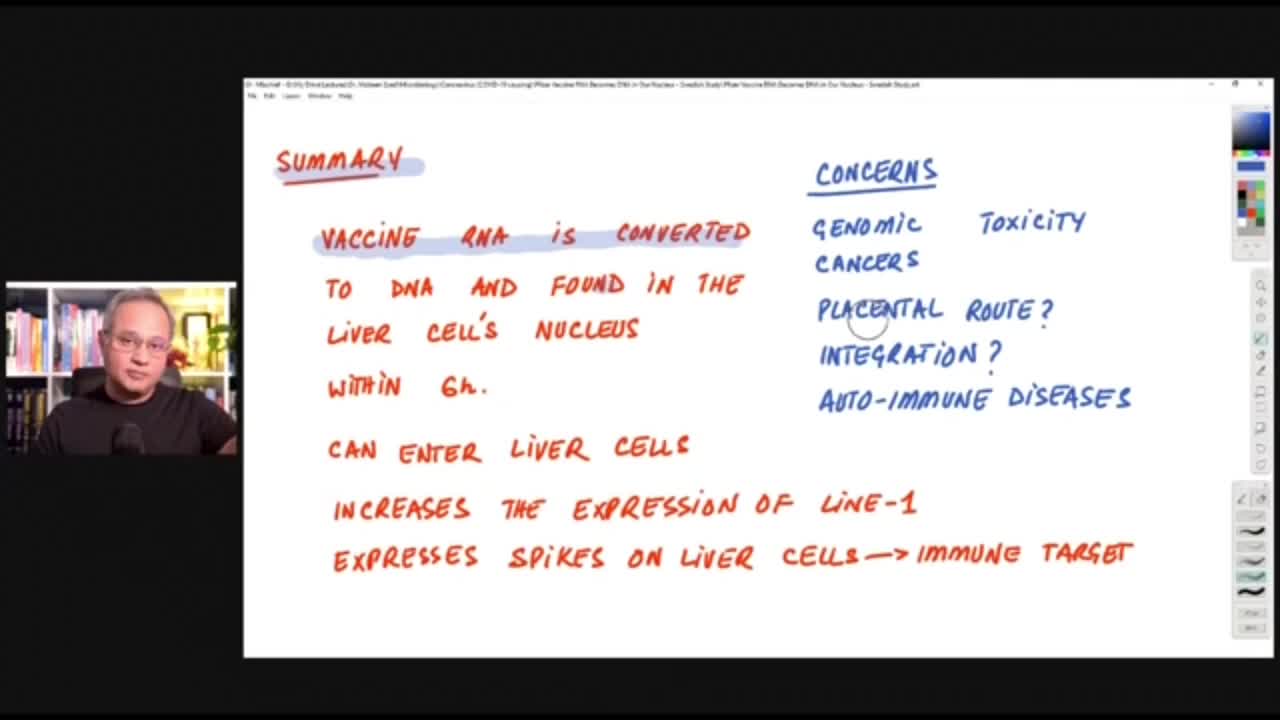 SUMMARY
VACCINE RNA iS CONVERTED
TO DNA AND FOUND IN THE
LIVER CELL'S NUCLEUS
WITHIN 6h.
CAN ENTER LIVER CELLS
INCREASES THE EXPRESSION OF LINE-1
EXPRESSES SPIKES ON LIVER CELLS → IMMUNE TARGET
CONCERNS
GENOMIC TOXICITY
CANCERS
PLACENTAL ROUTE?
INTEGRATION?
AUTO-IMMUNE DISEASES